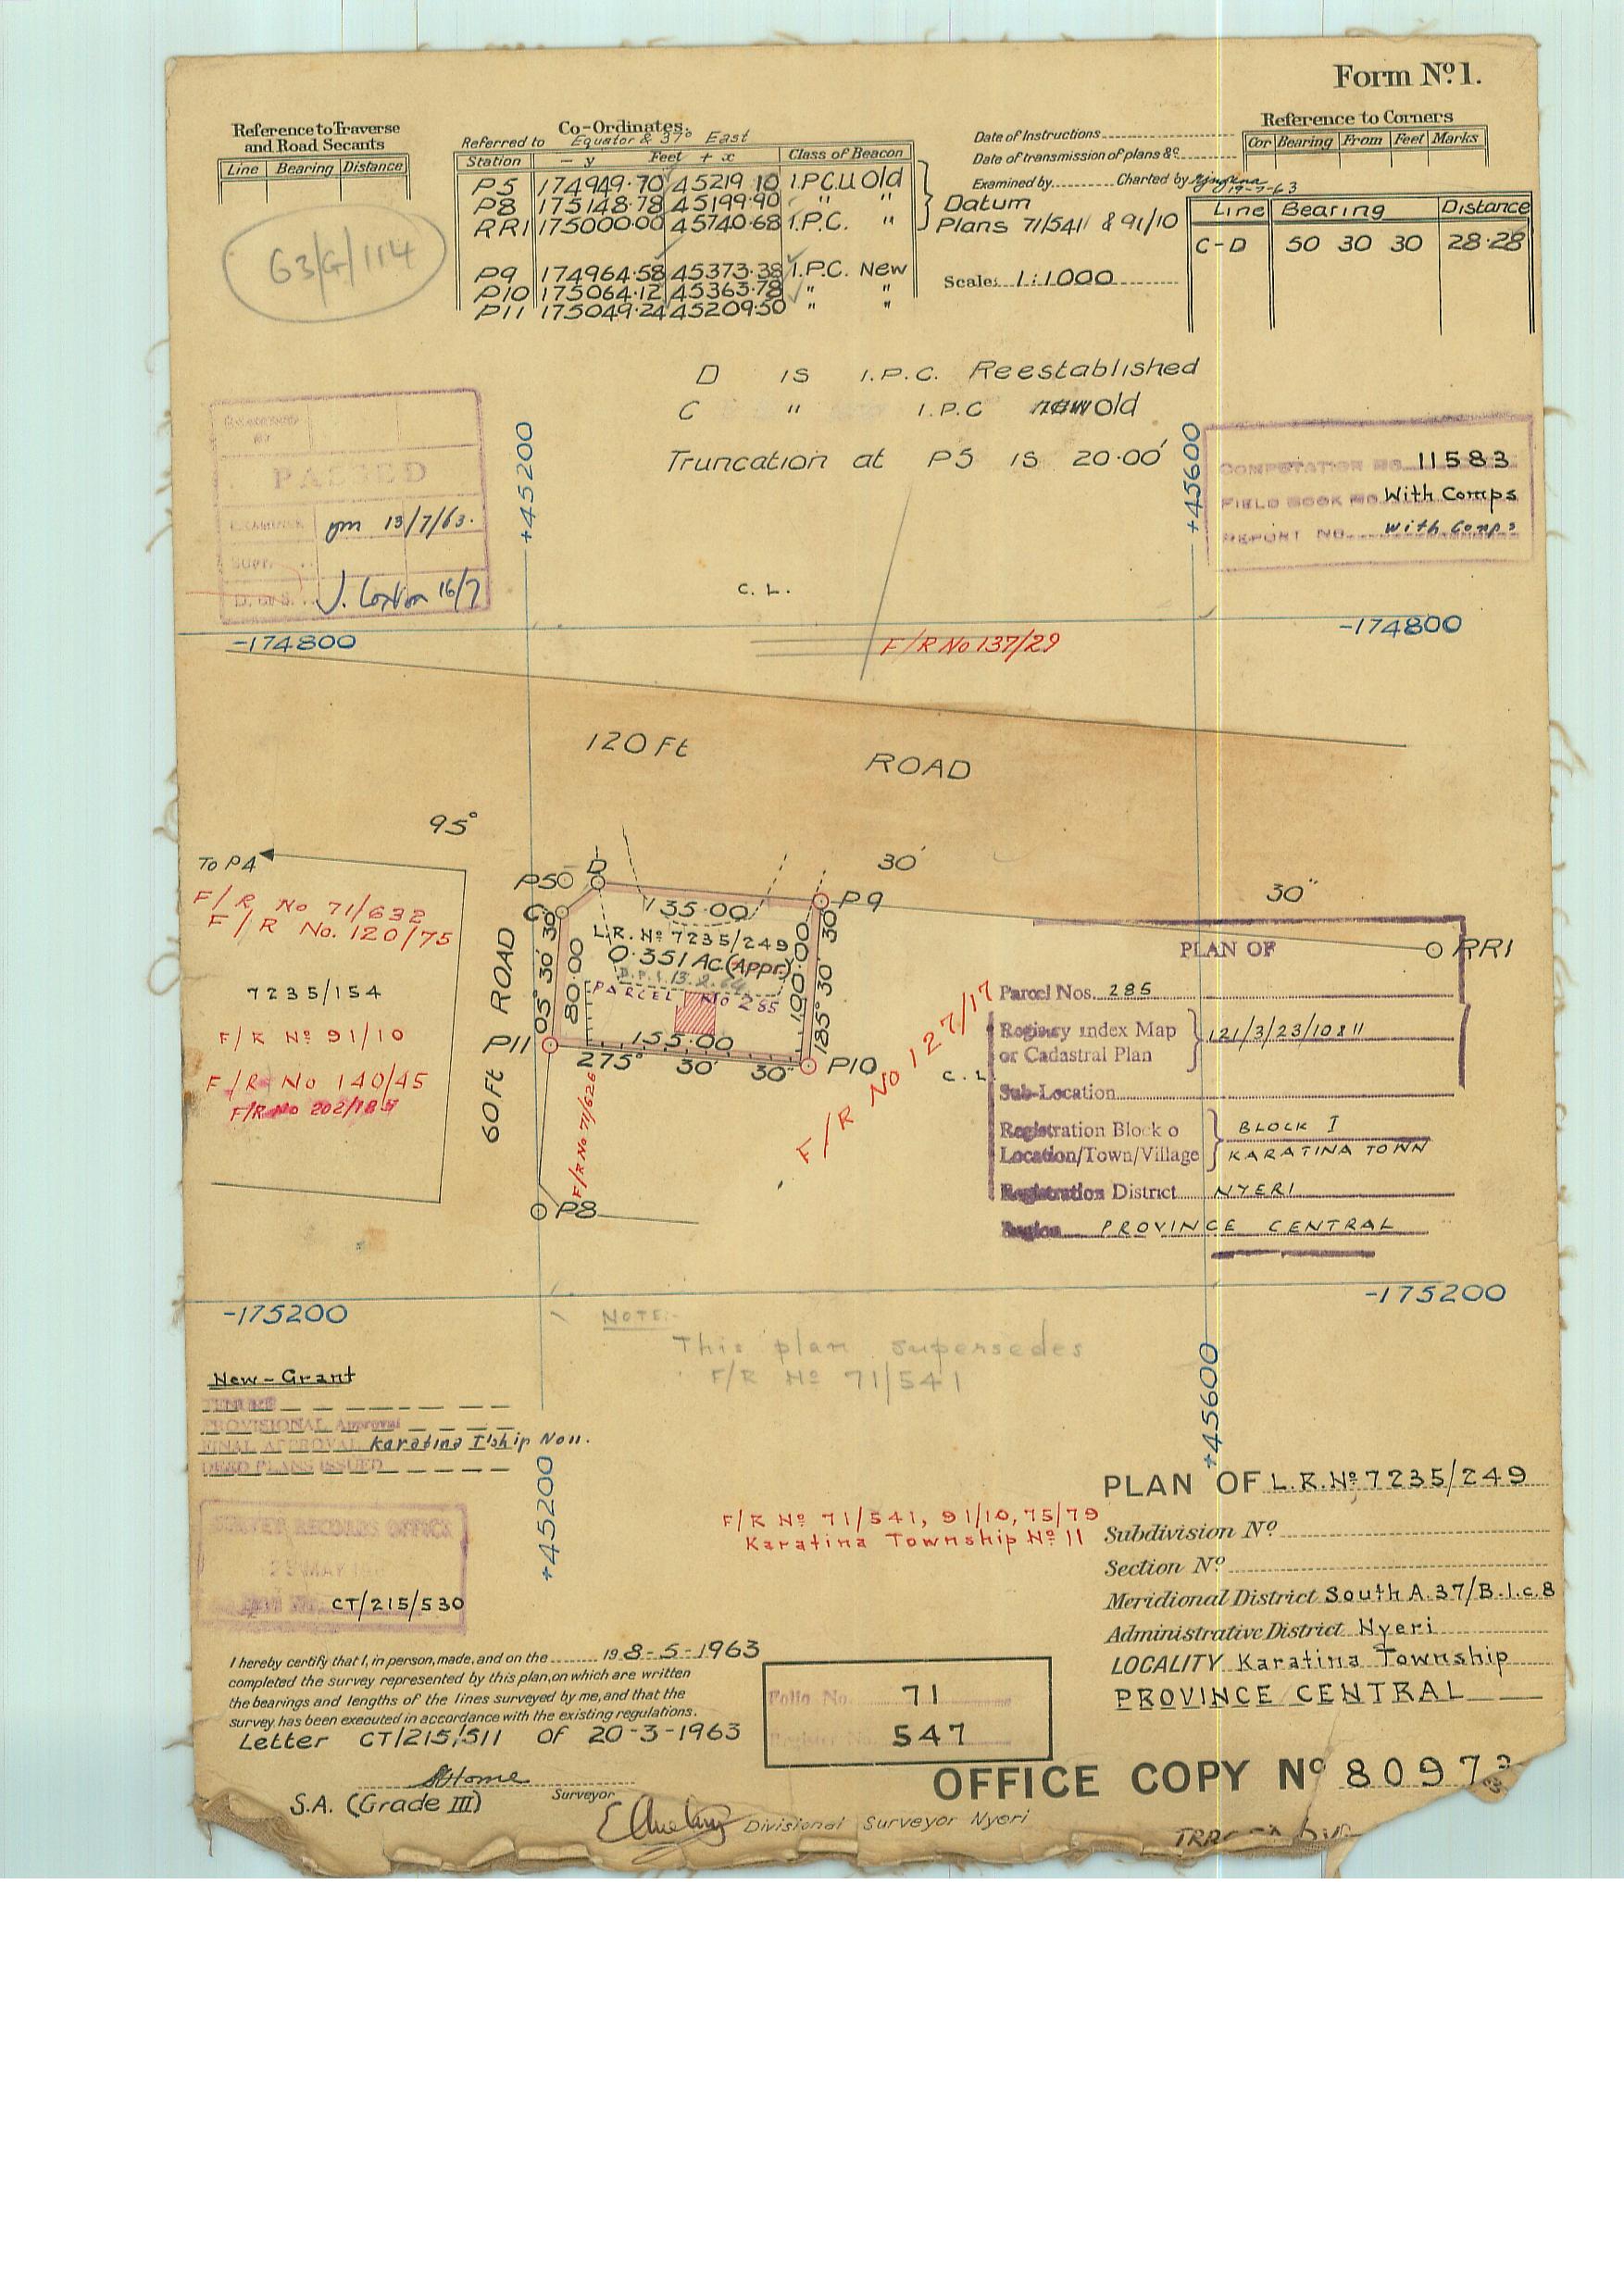 Form Nº 1.
Reference to Traverse
and Road Secants
Line Bearing Distance
63/G/114
Co-Ordinates.
Referred to Equator & 37° East
Station – y Feet + x Class of Beacon
P5 174949·70 45219·10 I.P.C.U Old
P8 175148·78 45199·90 " "
RR1 175000·00 45740·68 I.P.C. "
P9 174964·58 45373·38 I.P.C. New
P10 175064·12 45363·78 " "
P11 175049·24 45209·50 " "
Date of Instructions
Date of transmission of plans &c
Examined by Charted by 19-7-63
Datum
Plans 71/541 & 91/10
Scale: 1:1000
Reference to Corners
Cor Bearing From Feet Marks
Line Bearing Distance
C-D 50 30 30 28·28
D IS I.P.C. Reestablished
C " I.P.C old
Truncation at P5 IS 20·00'
PASSED
13/7/63.
16/7
COMPUTATION NO. 11583
FIELD BOOK NO. With Comps
REPORT NO. With Comps
+45200
+45600
C. L.
-174800
-174800
F/R No 137/29
120 Ft ROAD
95° 30' 30"
To P4
F/R No 71/632
F/R No. 120/75
7235/154
F/R Nº 91/10
F/R No 140/45
60 Ft ROAD
P5 D P9
C
135·00
L.R. Nº 7235/249
0·351 Ac (Appr.)
PARCEL NO 285
05° 30' 30"
80·00
100·00
185° 30' 30"
155·00
P11 275° 30' 30" P10
F/R No 71/626
P8
F/R No 127/17
C. L.
RR1
PLAN OF
Parcel Nos. 285
Registry Index Map
or Cadastral Plan 121/3/23/10 & 11
Sub-Location
Registration Block o
Location/Town/Village BLOCK I
KARATINA TOWN
Registration District NYERI
Region PROVINCE CENTRAL
-175200
-175200
NOTE:-
This plan supersedes
F/R Nº 71/541
New-Grant
TENURE
PROVISIONAL Approval
FINAL APPROVAL Karatina T'ship No 11.
DEED PLANS ISSUED
+45200
+45600
SURVEY RECORDS OFFICE
CT/215/530
F/R Nº 71/541, 91/10, 75/79
Karatina Township Nº 11
PLAN OF L.R. Nº 7235/249
Subdivision Nº
Section Nº
Meridional District South A.37/B-1.c.8
Administrative District Nyeri
LOCALITY Karatina Township
PROVINCE CENTRAL
I hereby certify that I, in person, made, and on the 19 8-5-1963
completed the survey represented by this plan, on which are written
the bearings and lengths of the lines surveyed by me, and that the
survey has been executed in accordance with the existing regulations.
Letter CT/215/511 of 20-3-1963
Surveyor
S.A. (Grade III)
Divisional Surveyor Nyeri
Folio No. 71
Register No. 547
OFFICE COPY Nº 8097